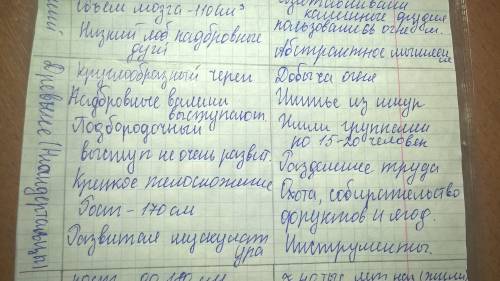 Объем мозга - 110 см³
Низкий лоб надбровные
дуги
каменные орудия
пользовались огнем.
Абстрактное мышление
Древние (Неандертальцы)
Круглообразный череп
Надбровные валики
выступают.
Подбородочный
выступ не очень развит.
Крепкое телосложение
Рост - 170 см
Развитая мускулат
ура
Добыча огня
Шитье из шкур
Жили группами
по 15-20 человек
Разделение труда
Охота, собирательство
фруктов и ягод.
Инструменты.